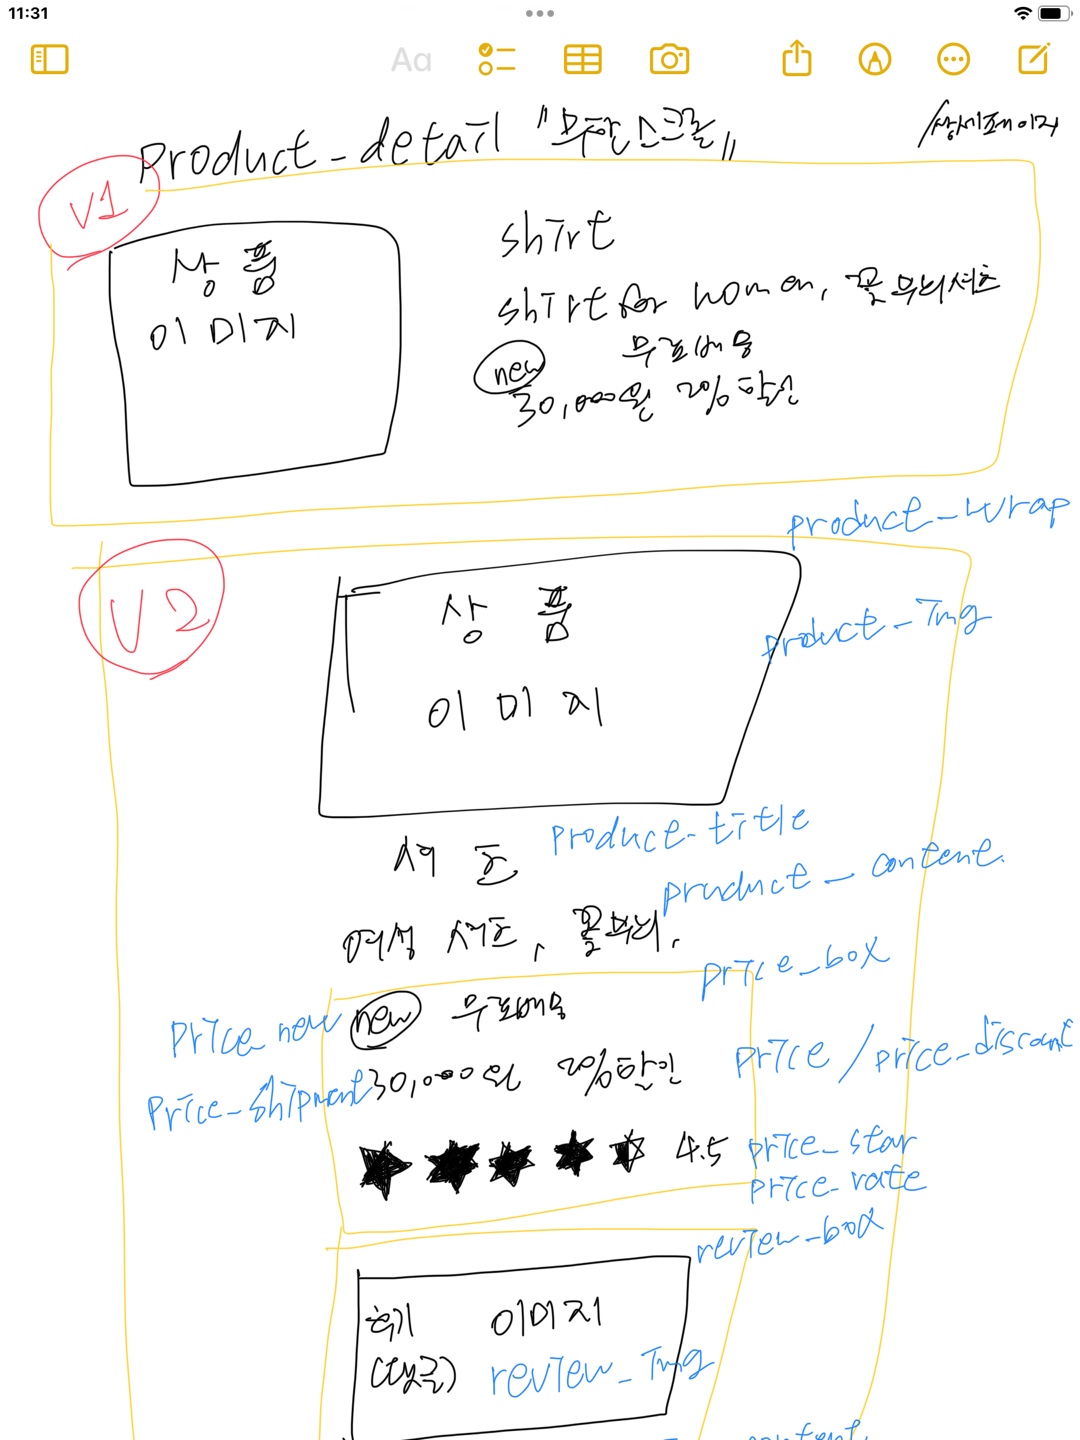 11:31
Aa
product_detail "무한스크롤"
/상세페이지
V1
상품
이미지
shirt
shirt for women, 꽃무늬셔츠
new 무료배송
30,000원 2% 할인
product_wrap
V2
상품
이미지
product_img
셔츠
product_title
여성 셔츠, 꽃무늬,
product_content
price_box
price_new
new 무료배송
price_shipment
30,000원 20% 할인
price / price_discount
4.5
price_star
price_rate
review_box
후기 이미지
(댓글) review_img
content